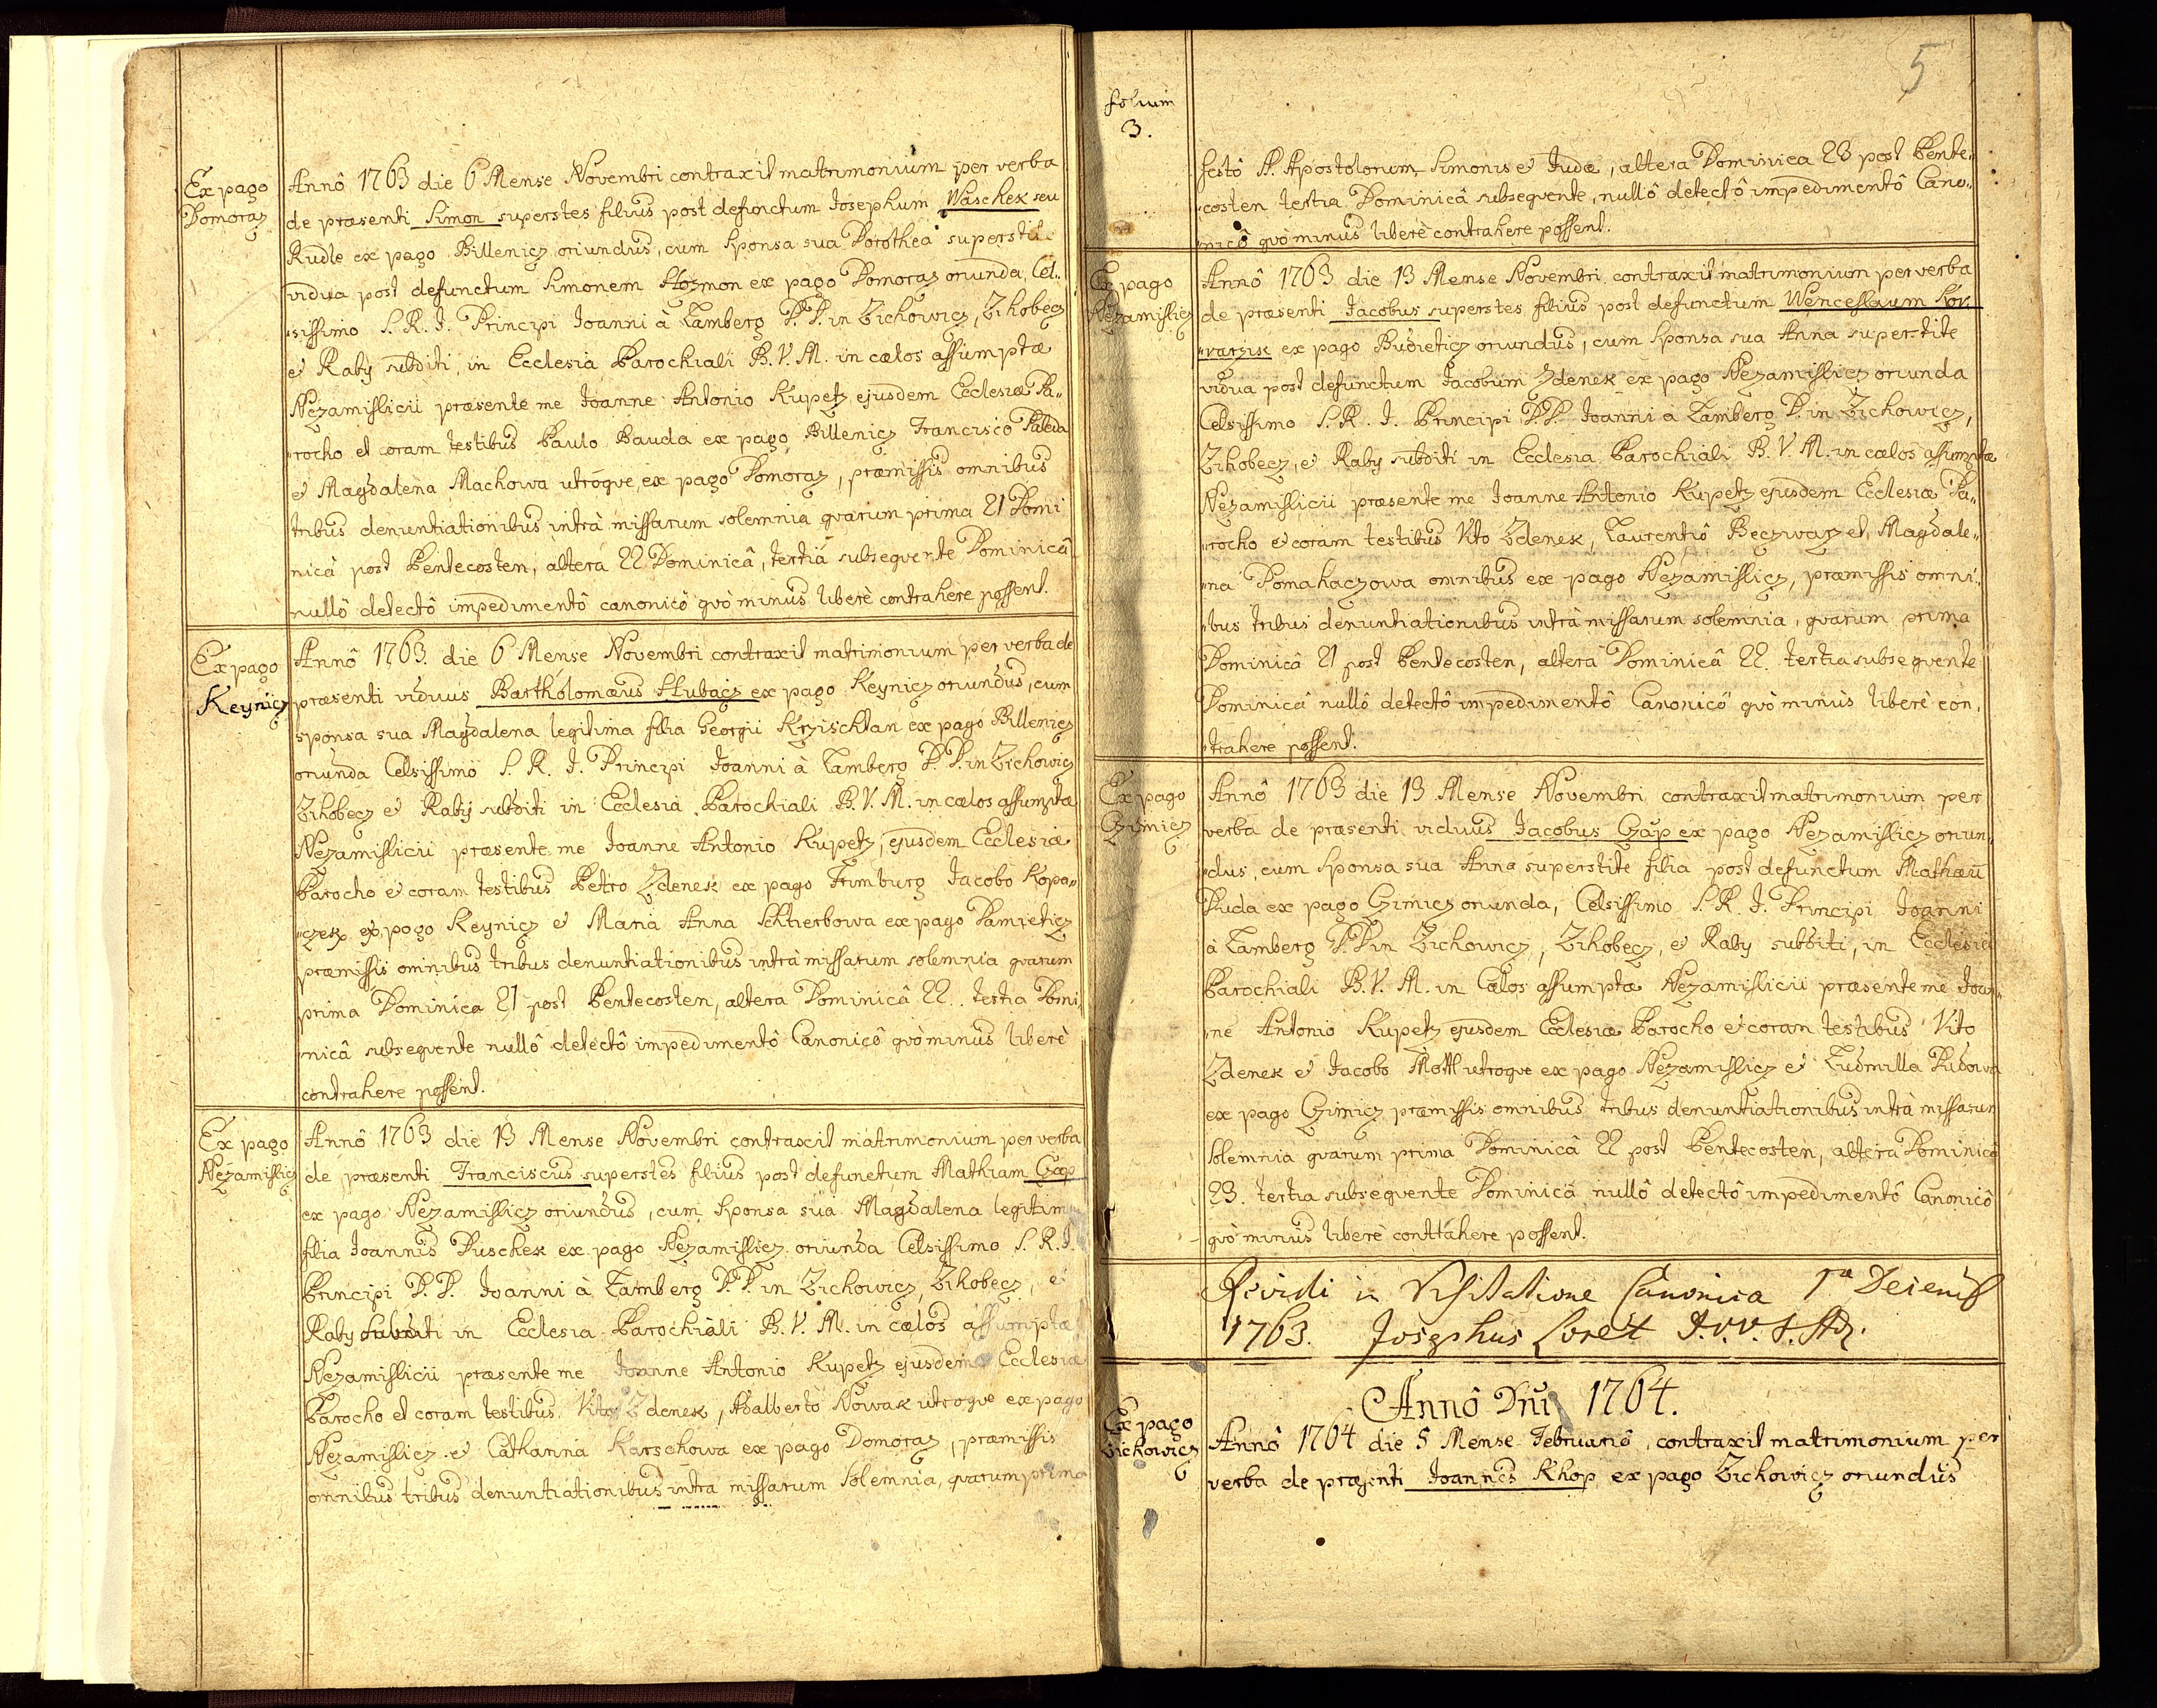 Ex pago
Domoraz
Annô 1763 die 6 Mense Novembri contraxit matrimonium per verba
de præsenti Simon superstes filius post defunctum Josephum Waschek seu
Rudle ex pago Billenicz oriundus, cum Sponsa sua Dorothea superstit
vidua post defunctum Simonem Hozmon ex pago Domoraz oriunda, Cel„
„sissimo S. R. I. Principi Joanni à Lamberg P. P. in Zichowicz, Zihobecz
et Raby subditi, in Ecclesia Parochiali B. V. M. in cælos assumptæ
Nezamislicii præsente me Joanne Antonio Kupetz ejusdem Ecclesiæ Pa„
„rocho et coram testibus Paulo Bauda ex pago Billenicz Francisco
et Magdalena Machowa utrôqve, ex pago Domoraz, præmissis omnibus
tribus denuntiationibus intrà missarum solemnia qvarum prima 21 Domi
nicâ post Pentecosten, alterâ 22 Dominicâ, tertiâ subseqvente Dominicâ
nullô detectô impedimentô canonicô qvò minus liberè contrahere possent.
Ex pago
Keynicz
Annô 1763. die 6 Mense Novembri contraxit matrimonium per verba de
præsenti viduus Bartholomæus Stubacz ex pago Keynicz oriundus, cum
sponsa sua Magdalena legitima filia Georgii Krzischtan ex pago Billenicz
oriunda Celsissimo S. R. I. Principi Joanni à Lamberg P. P. in Zichowicz
Zihobecz et Raby subditi in Ecclesiâ Parochiali B. V. M. in cælos assumptæ
Nezamislicii præsente me Joanne Antonio Kupetz, ejusdem Ecclesiæ
Parocho et coram testibus Petro Zdenek ex pago Frimburg Jacobo Kopa„
„czek ex pago Keynicz et Maria Anna Schtierbowa ex pago Damieticz
præmissis omnibus tribus denuntiationibus intrà missarum solemnia qvarum
prima Dominica 21 post Pentecosten, altera Dominicâ 22. tertia Domi„
„nicâ subseqvente nullô detectô impedimentô Canonicô qvò minus liberè
contrahere possent.
Ex pago
Nezamislicz
Annô 1763 die 13 Mense Novembri contraxit matrimonium per verba
de præsenti Franciscus superstes filius post defunctum Mathiam Czap
ex pago Nezamislicz oriundus, cum Sponsa sua Magdalena legitima
filia Joannis Duschek ex pago Nezamislicz oriunda Celsissimo S. R. I.
Principi P. P. Joanni à Lamberg P. P. in Zichowicz, Zihobecz, et
Raby subditi in Ecclesia Parochiali B. V. M. in cælos assumptæ
Nezamislicii præsente me Joanne Antonio Kupetz ejusdem Ecclesiæ
Parocho et coram testibus Vito Zdenek, Adalberto Nowak utroqve ex pago
Nezamislicz et Catharina Karschowa ex pago Domoraz, præmissis
omnibus tribus denuntiationibus intra missarum Solemnia, qvarum prima
5
folium
3.
festô S. Apostolorum Simonis et Judæ, altera Dominica 23 post Pente„
„costen tertia Dominicâ subseqvente, nullô detectô impedimentô Cano„
„nicô qvò minus liberè contrahere possent.
Ex pago
Nezamislicz
Annô 1763 die 13 Mense Novembri contraxit matrimonium per verba
de præsenti Jacobus superstes filius post defunctum Wenceslaum Kor„
„varzik ex pago Budieticz oriundus, cum Sponsa sua Anna superstite
vidua post defunctum Jacobum Zdenek ex pago Nezamislicz oriunda
Celsissimo S. R. I. Principi P. P. Joanni à Lamberg P. in Zichowicz,
Zihobecz, et Raby subditi in Ecclesia Parochiali B. V. M. in cælos assumptæ
Nezamislicii præsente me Joanne Antonio Kupetz ejusdem Ecclesiæ Pa„
„rocho et coram testibus Vito Zdenek, Laurentiô Beczwarz et Magdale„
„na Domahaczowa omnibus ex pago Nezamislicz, præmissis omni„
„bus tribus denuntiationibus intrà missarum solemnia, qvarum prima
Dominicâ 21 post Pentecosten, altera Dominicâ 22. tertia subseqvente
Dominicâ nullô detectô impedimentô Canonicô qvò minùs liberè con„
„trahere possent.
Ex pago
Czimicz
Annô 1763 die 13 Mense Novembri contraxit matrimonium per
verba de præsenti viduus Jacobus Czap ex pago Nezamislicz oriun„
„dus, cum Sponsa sua Anna superstite filia post defunctum Mathæū
Duda ex pago Czimicz oriunda, Celsissimo S. R. I. Principi Joanni
à Lamberg P. P. in Zichowicz, Zihobecz, et Raby subditi, in Ecclesia
Parochiali B. V. M. in Cælos assumptæ Nezamislicii præsente me Joan„
„ne Antonio Kupetz ejusdem Ecclesiæ Parocho et coram testibus Vito
Zdenek et Jacobo Mottl utroqve ex pago Nezamislicz et Ludmilla Dudowa
ex pago Czimicz præmissis omnibus tribus denuntiationibus intrà missarum
Solemnia qvarum prima Dominicâ 22 post Pentecosten, altera Dominicâ
23. tertia subseqvente Dominicâ nullô detectô impedimentô Canonicô
qvò minùs liberè contrahere possent.
Revidi in Visitatione Canonica 1ma Decemb
1763. Josephus Loret
Annô Dni 1764.
Ex pago
Zichowicz
Annô 1764 die 5 Mense Februariô, contraxit matrimonium per
verba de præsenti Joannes Khop ex pago Zichowicz oriundus